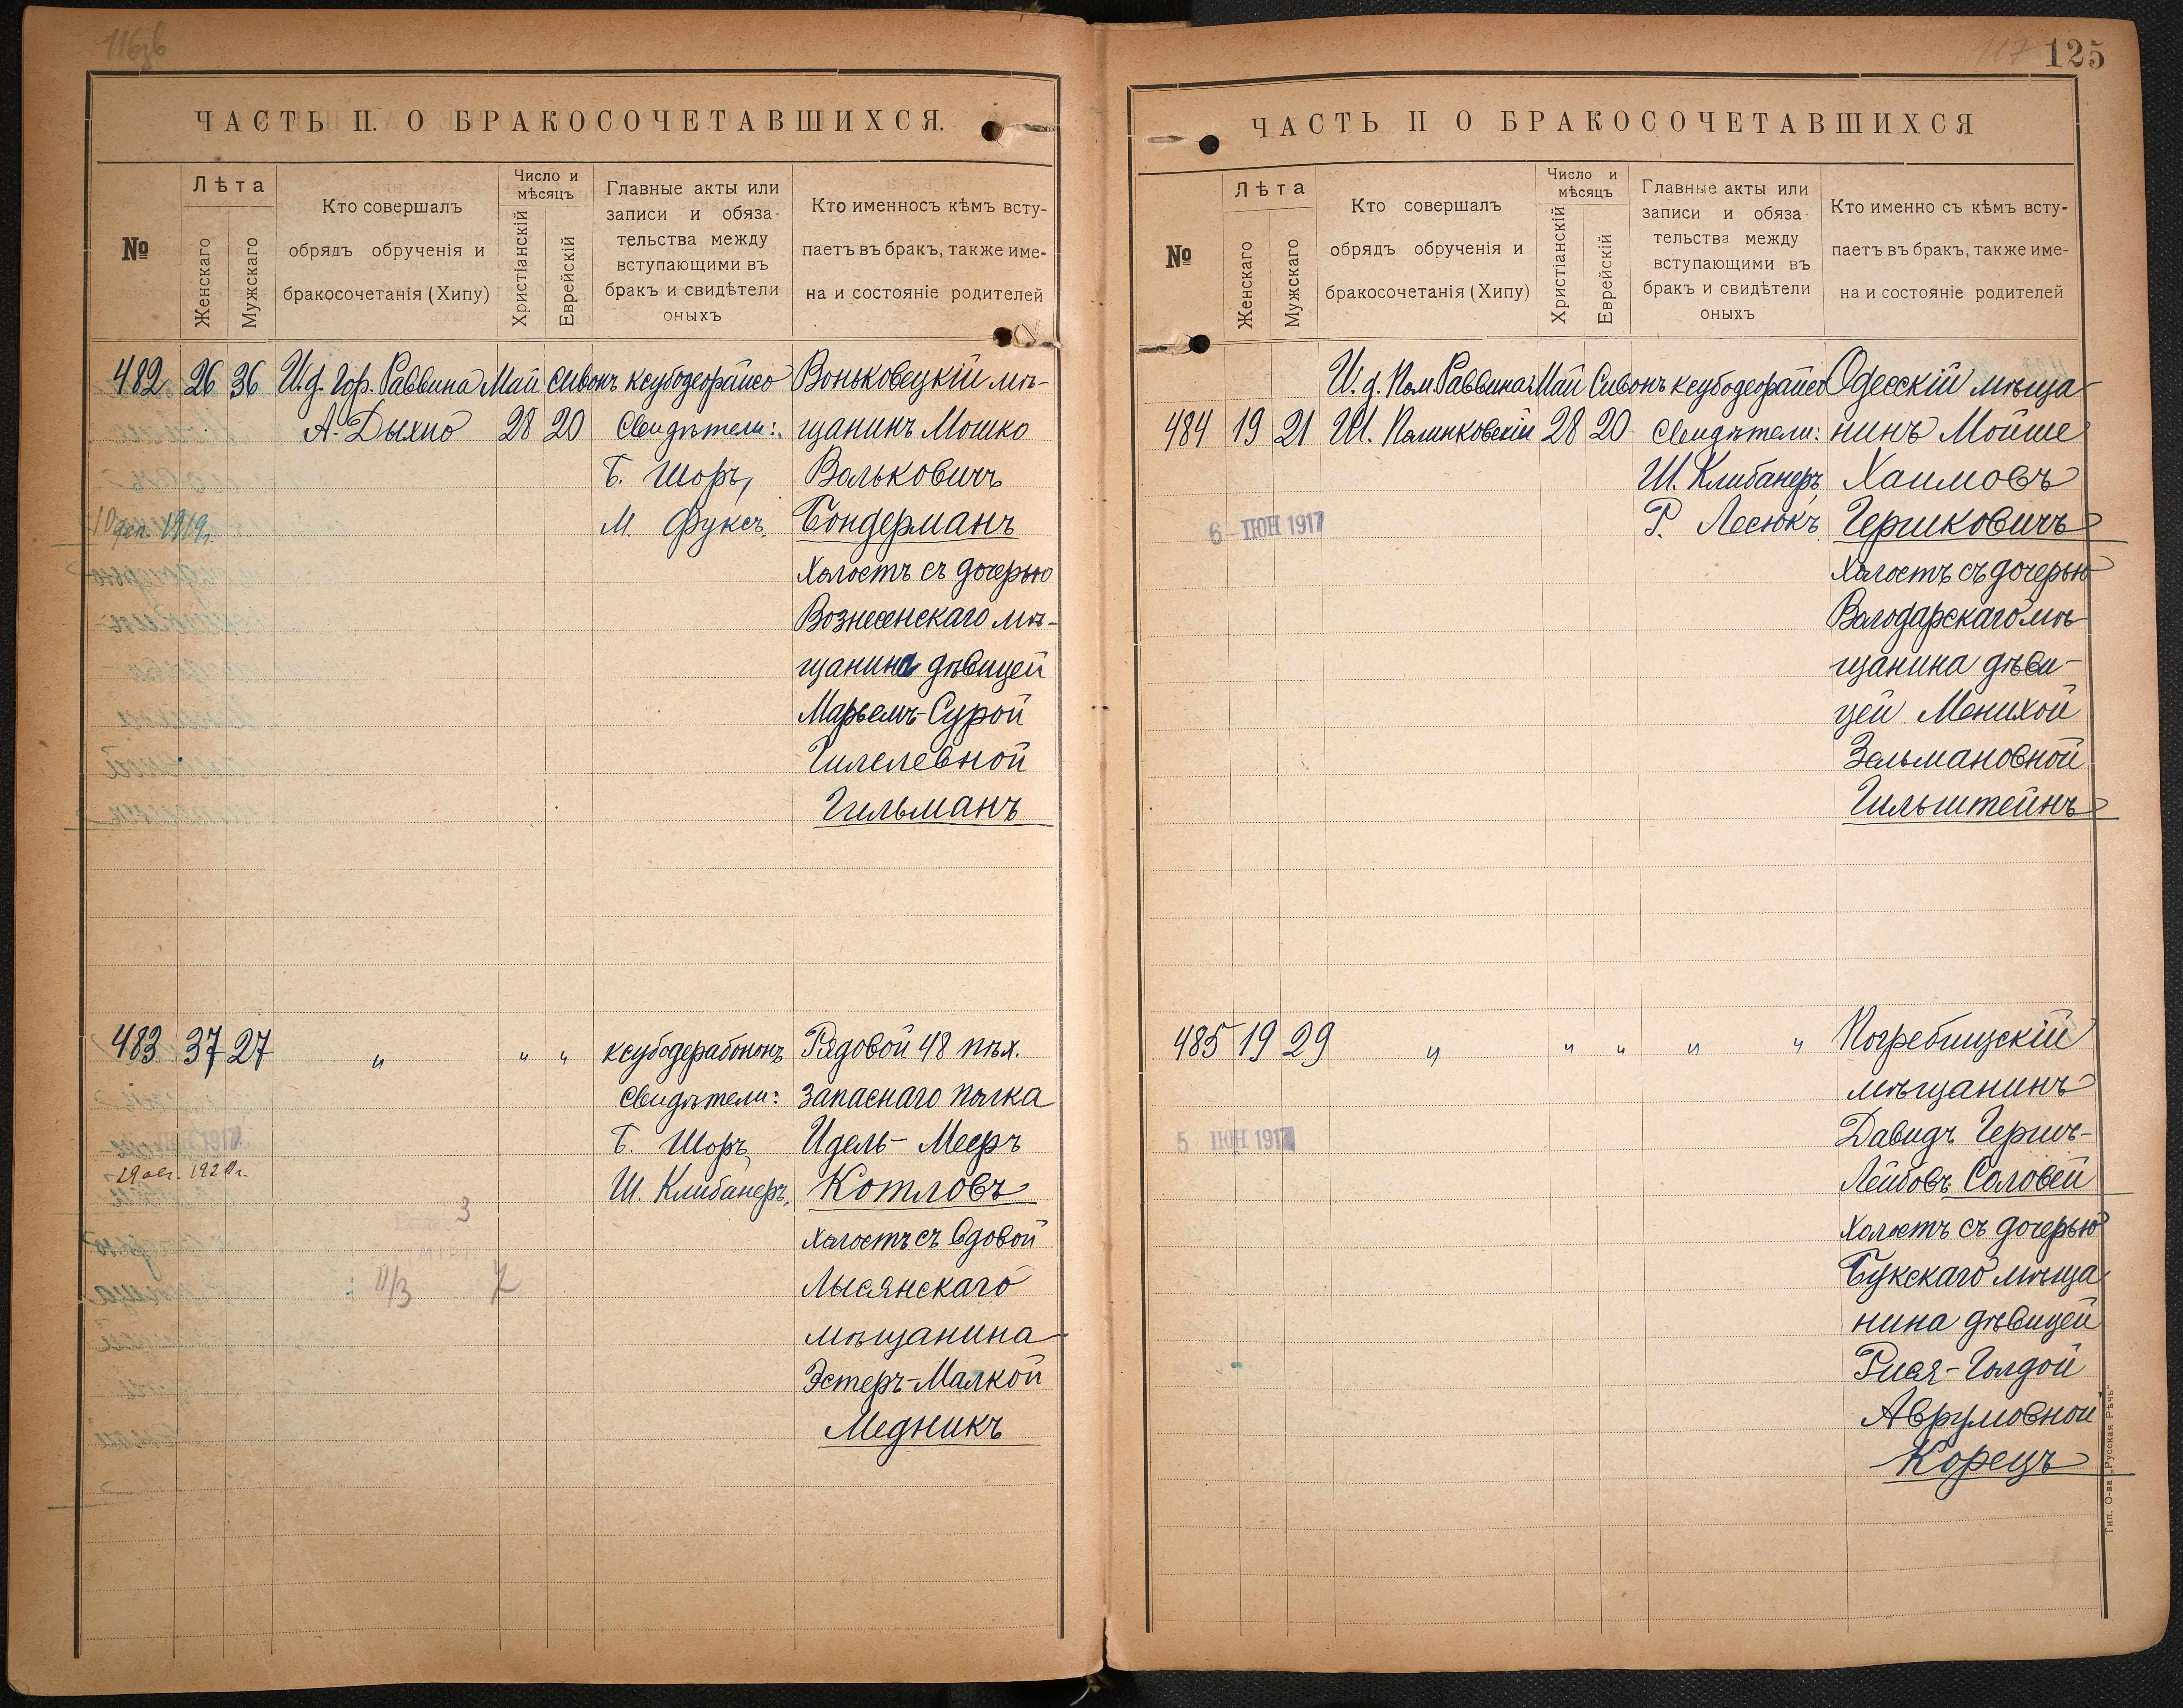 116об
ЧАСТЬ II. О БРАКОСОЧЕТАВШИХСЯ.
№
Лѣта
Женскаго
Мужскаго
Кто совершалъ
обрядъ обрученія и
бракосочетанія (Хипу)
Число и
мѣсяцъ
Христіанскій
Еврейскій
Главные акты или
записи и обяза-
тельства между
вступающими въ
бракъ и свидѣтели
оныхъ
Кто именносъ кѣмъ всту-
паетъ въ бракъ, также име-
на и состояніе родителей
482 26 36 И.д. Гор. Раввина Май Сивонъ ксубодеорайсо Воньковецкій мѣ-
А. Дыхно 28 20 Свидѣтели: щанинъ Мошко
Б. Шоръ, Вольковичъ
10 дек. 1919г. М. Фуксъ. Бондерманъ
холостъ съ дочерью
Вознесенскаго мѣ-
щанина дѣвицей
Марьемъ-Сурой
Гилелевной
Гильманъ
483 37 27 " " " ксубодерабононъ Рядовой 48 пѣх.
Свидѣтели: запаснаго полка
Б. Шоръ, Идель-Мееръ
1920г. Ш. Клибанеръ, Котловъ
3
холостъ съ вдовой
II/3
Лысянскаго
мѣщанина
Эстеръ-Малкой
Медникъ
117 125
ЧАСТЬ II О БРАКОСОЧЕТАВШИХСЯ
№
Лѣта
Женскаго
Мужскаго
Кто совершалъ
обрядъ обрученія и
бракосочетанія (Хипу)
Число и
мѣсяцъ
Христіанскій
Еврейскій
Главные акты или
записи и обяза
тельства между
вступающими въ
бракъ и свидѣтели
оныхъ
Кто именно съ кѣмъ всту-
паетъ въ бракъ, также име-
на и состояніе родителей
И.д. Пом. Раввина Май Сивонъ ксубодеорайсо Одесскій мѣща
484 19 21 Ш. Полинковскій 28 20 Свидѣтели: нинъ Мойше
Ш. Клибанеръ, Хаимовъ
6 - ІЮН 1917 Р. Лесюкъ Гершковичъ
холостъ съ дочерью
Володарскаго мѣ-
щанина дѣви-
цей Менихой
Зельмановной
Гильштейнъ
485 19 29 " " " " " Погребищскій
мѣщанинъ
5 - ІЮН 1917 Давидъ Гершъ-
Лейбовъ Соловей
холостъ съ дочерью
Букскаго мѣща
нина дѣвицей
Рися-Голдой
Аврумовной
Корецъ
Тип. О-ва „Русская Рѣчь"